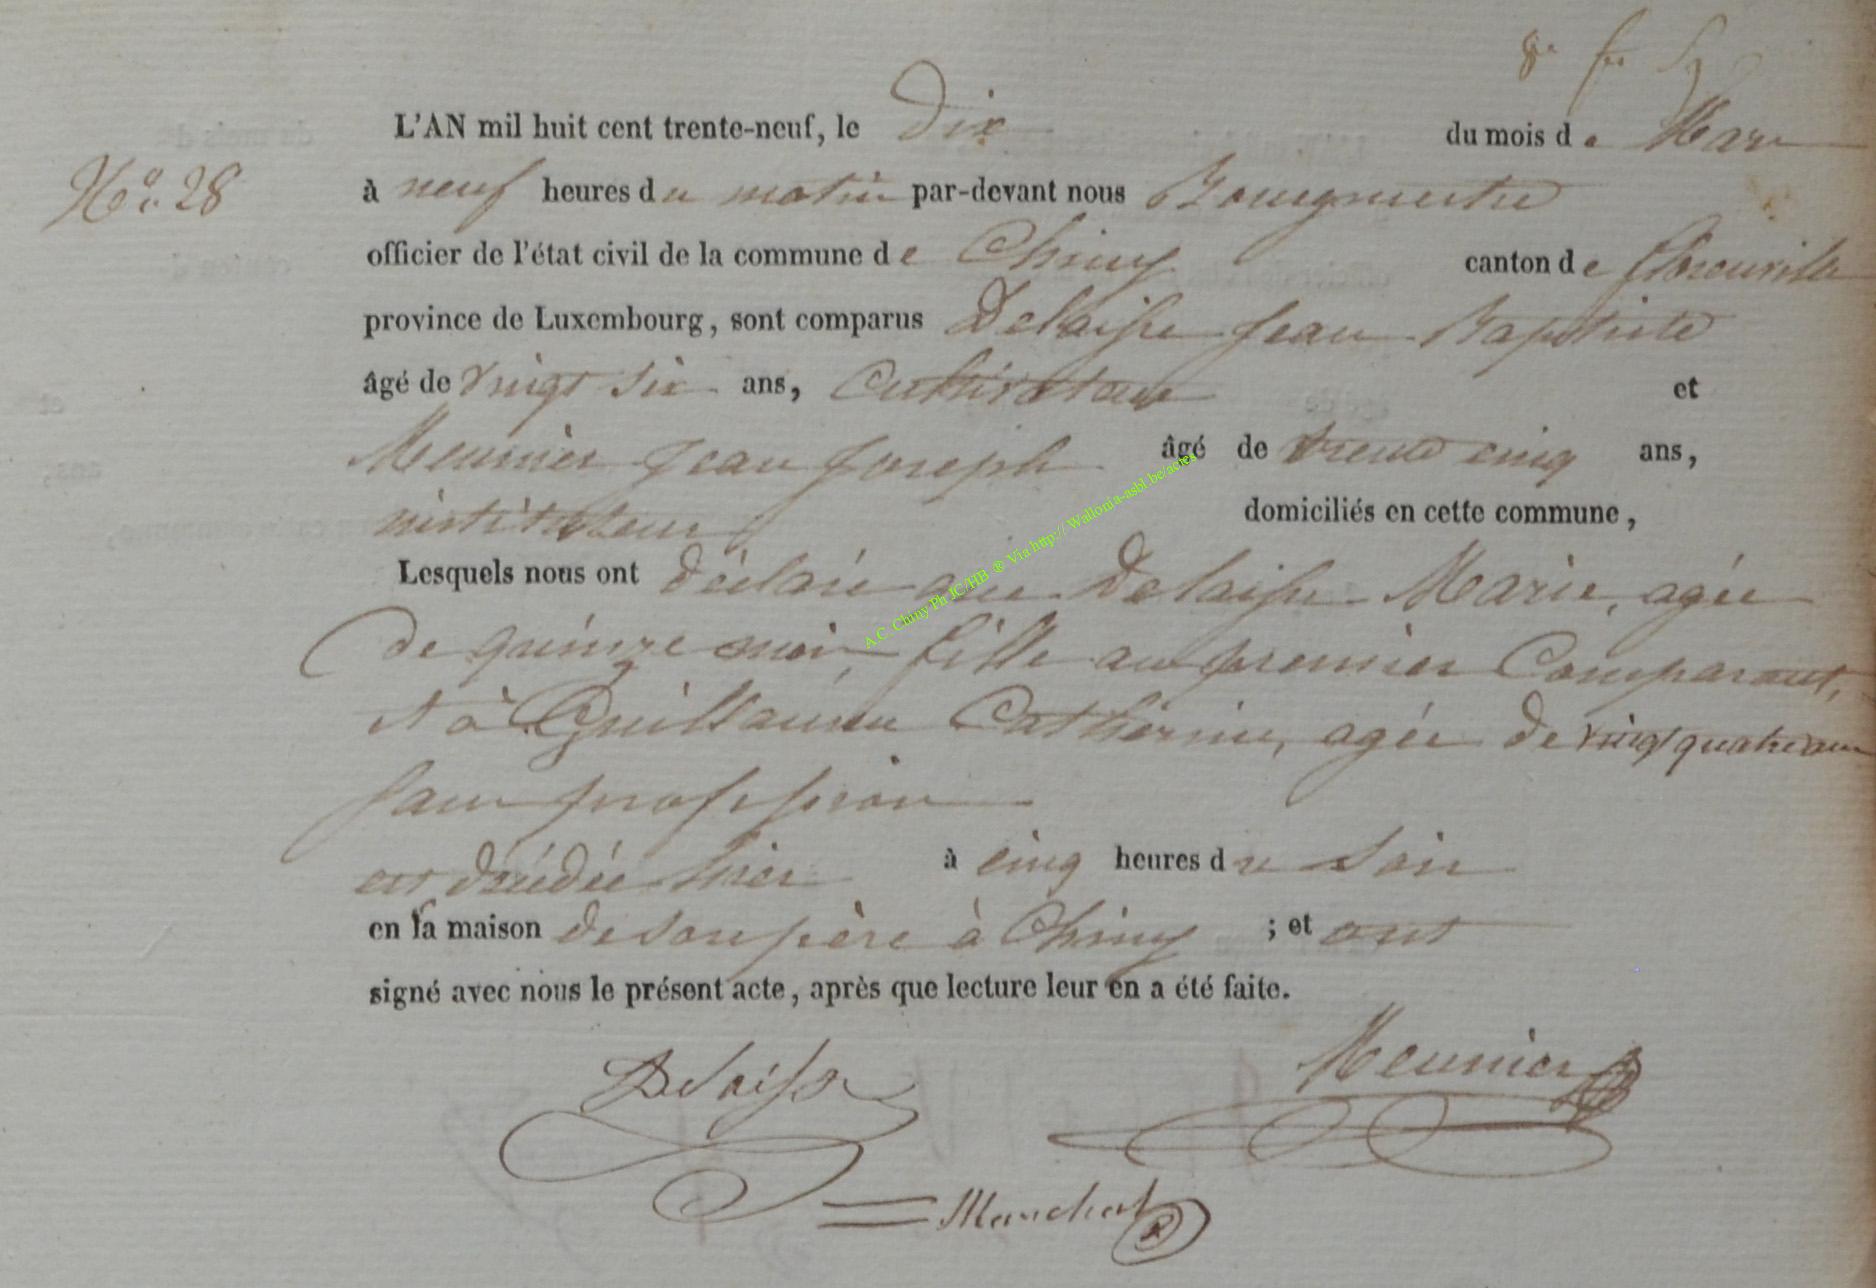 L'AN mil huit cent trente-neuf, le Dix du mois de Mars
N° 28
à neuf heures du matin par-devant nous Bourgmestre
officier de l'état civil de la commune de Chiny canton de florenville
province de Luxembourg, sont comparus Delaisse Jean Baptiste
âgé de vingt six ans, Cultivateur et
Meunier Jean Joseph âgé de trente cinq ans,
instituteur domiciliés en cette commune,
Lesquels nous ont déclaré que Delaisse Marie, agée
de quinze mois, fille au premier Comparant,
et à Guillaume Catherine, agée de vingt quatre ans
sans profession
est décédée hier à cinq heures du soir
en la maison de son père à Chiny ; et ont
signé avec nous le présent acte, après que lecture leur en a été faite.
Delaisse Meunier
Manchart
A.C. Chiny Ph JC/HB ® Via http:// Wallonia-asbl.be/actes